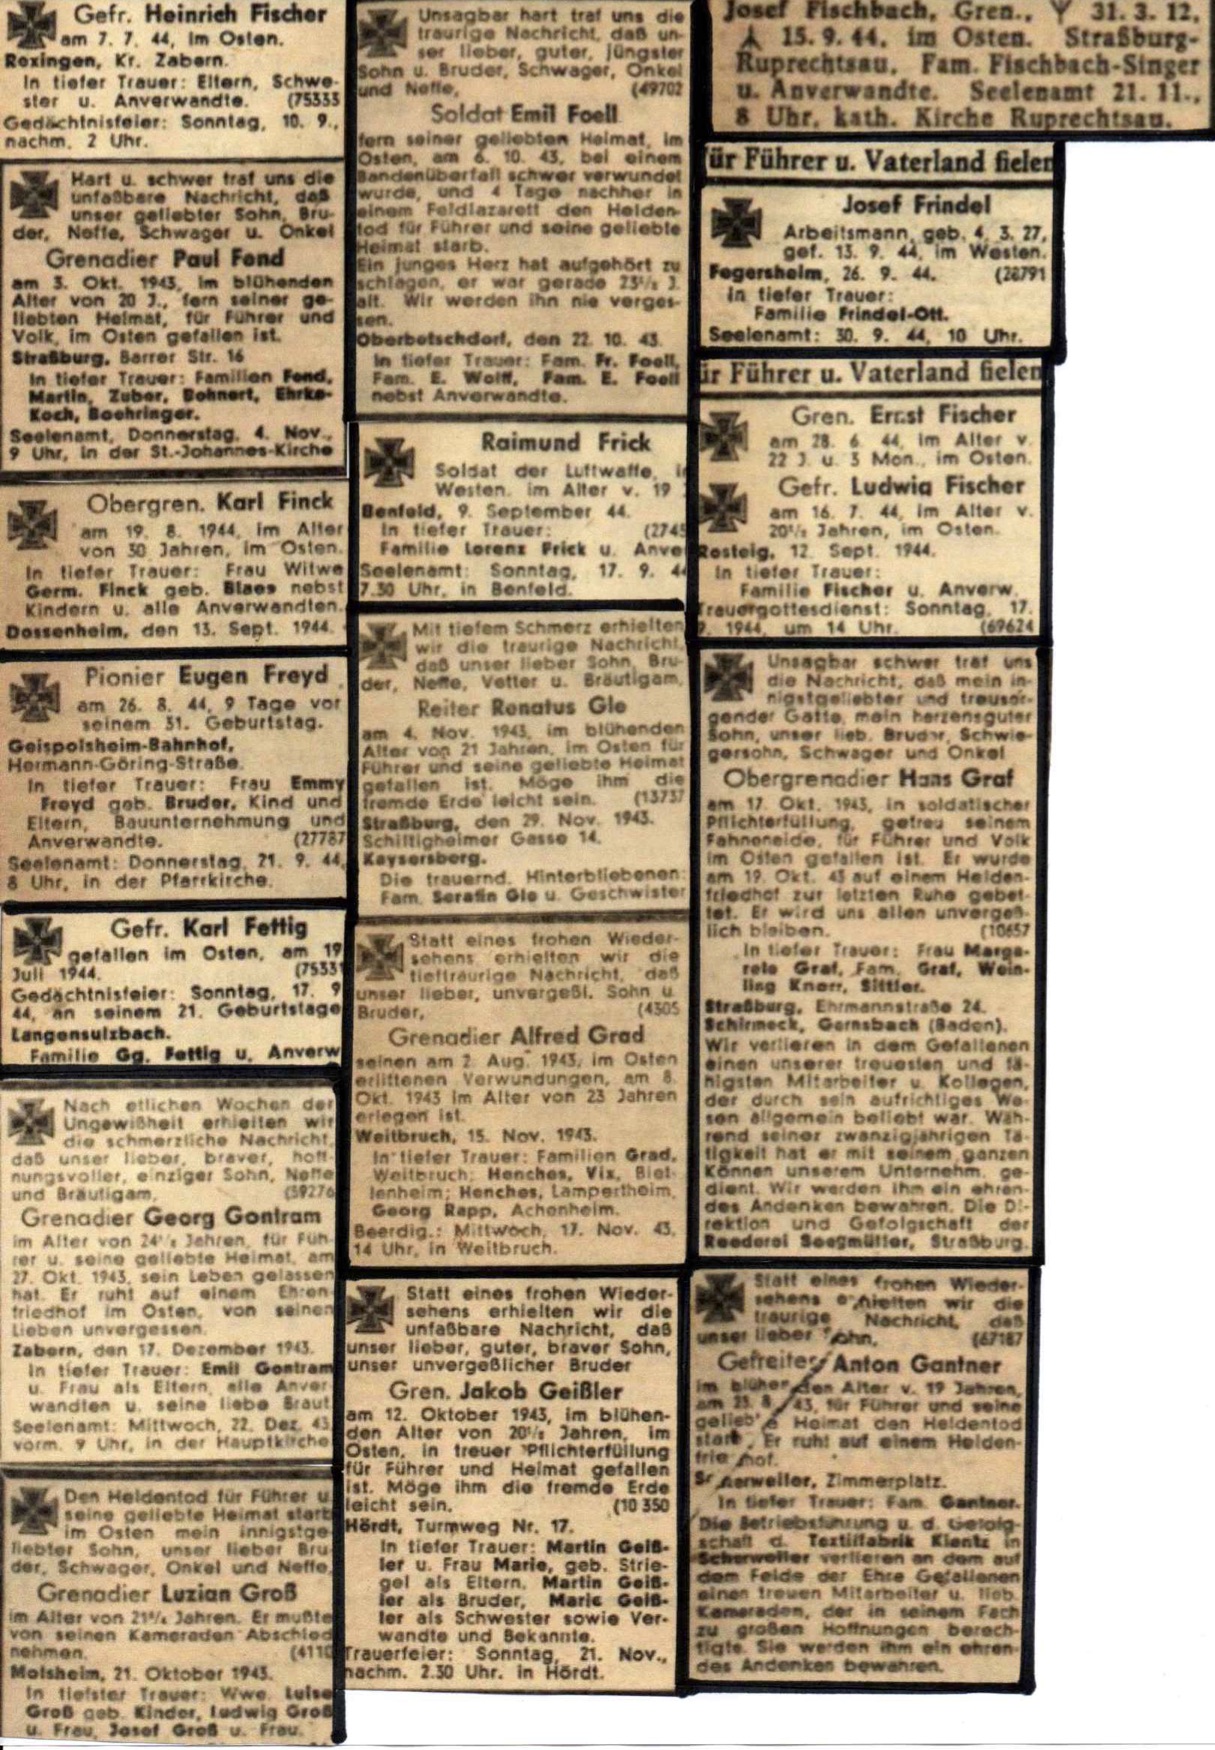 Gefr. Heinrich Fischer
am 7. 7. 44, im Osten.
Rexingen, Kr. Zabern.
In tiefer Trauer: Eltern, Schwe-
ster u. Anverwandte. (75333
Gedächtnisfeier: Sonntag, 10. 9.,
nachm. 2 Uhr.
Hart u. schwer traf uns die
unfaßbare Nachricht, daß
unser geliebter Sohn, Bru-
der, Neffe, Schwager u. Onkel
Grenadier Paul Fend
am 3. Okt. 1943, im blühenden
Alter von 20 J., fern seiner ge-
liebten Heimat, für Führer und
Volk, im Osten gefallen ist.
Straßburg, Barrer Str. 16
In tiefer Trauer: Familien Fend,
Martin, Zuber, Bohnert, Ehrke-
Koch, Boehringer.
Seelenamt, Donnerstag, 4. Nov.,
9 Uhr, in der St.-Johannes-Kirche
Obergren. Karl Finck
am 19. 8. 1944, im Alter
von 30 Jahren, im Osten.
In tiefer Trauer: Frau Witwe
Germ. Finck geb. Blaes nebst
Kindern u. alle Anverwandten.
Dossenheim, den 13. Sept. 1944.
Pionier Eugen Freyd
am 26. 8. 44, 9 Tage vor
seinem 31. Geburtstag.
Geispolsheim-Bahnhof,
Hermann-Göring-Straße.
In tiefer Trauer: Frau Emmy
Freyd geb. Bruder, Kind und
Eltern, Bauunternehmung und
Anverwandte. (27787
Seelenamt: Donnerstag, 21. 9. 44,
8 Uhr, in der Pfarrkirche.
Gefr. Karl Fettig
gefallen im Osten, am 19
Juli 1944. (75331
Gedächtnisfeier: Sonntag, 17. 9
44, an seinem 21. Geburtstage
Langensulzbach.
Familie Gg. Fettig u. Anverw
Nach etlichen Wochen der
Ungewißheit erhielten wir
die schmerzliche Nachricht,
daß unser lieber, braver, hoff-
nungsvoller, einziger Sohn, Neffe
und Bräutigam, (59276
Grenadier Georg Gontram
im Alter von 24½ Jahren, für Füh-
rer u. seine geliebte Heimat, am
27. Okt. 1943, sein Leben gelassen
hat. Er ruht auf einem Ehren-
friedhof im Osten, von seinen
Lieben unvergessen.
Zabern, den 17. Dezember 1943.
In tiefer Trauer: Emil Gontram
u. Frau als Eltern, alle Anver-
wandten u. seine liebe Braut
Seelenamt: Mittwoch, 22. Dez. 43
vorm. 9 Uhr, in der Hauptkirche
Den Heldentod für Führer u.
seine geliebte Heimat starb
im Osten mein innigstge-
liebter Sohn, unser lieber Bru-
der, Schwager, Onkel und Neffe,
Grenadier Luzian Groß
im Alter von Jahren. Er mußte
von seinen Kameraden Abschied
nehmen. (4110
Molsheim, 21. Oktober 1943.
In tiefster Trauer: Wwe. Luise
Groß geb. Kinder, Ludwig Groß
u. Frau, Josef Groß u. Frau.
Unsagbar hart traf uns die
traurige Nachricht, daß un-
ser lieber, guter, jüngster
Sohn u. Bruder, Schwager, Onkel
und Neffe, (49702
Soldat Emil Foell
fern seiner geliebten Heimat, im
Osten, am 6. 10. 43, bei einem
Bandenüberfall schwer verwundet
wurde, und 4 Tage nachher in
einem Feldlazarett den Helden-
tod für Führer und seine geliebte
Heimat starb.
Ein junges Herz hat aufgehört zu
schlagen, er war gerade 23½ J.
alt. Wir werden ihn nie verges-
sen.
Oberbetschdorf, den 22. 10. 43.
In tiefer Trauer: Fam. Fr. Foell,
Fam. E. Wolff, Fam. E. Foell
nebst Anverwandte.
Raimund Frick
Soldat der Luftwaffe, i
Westen, im Alter v. 19
Benfeld, 9. September 44.
In tiefer Trauer: (2745
Familie Lorenz Frick u. Anve
Seelenamt: Sonntag, 17. 9. 44
7.30 Uhr, in Benfeld.
Mit tiefem Schmerz erhielten
wir die traurige Nachricht,
daß unser lieber Sohn, Bru-
der, Neffe, Vetter u. Bräutigam,
Reiter Renatus Gle
am 4. Nov. 1943, im blühenden
Alter von 21 Jahren, im Osten für
Führer und seine geliebte Heimat
gefallen ist. Möge ihm die
fremde Erde leicht sein. (13737
Straßburg, den 29. Nov. 1943.
Schiltigheimer Gasse 14.
Kaysersberg.
Die trauernd. Hinterbliebenen:
Fam. Serafin Gle u. Geschwister
Statt eines frohen Wieder-
sehens erhielten wir die
tieftraurige Nachricht, daß
unser lieber, unvergeßl. Sohn u.
Bruder, (4305
Grenadier Alfred Grad
seinen am 2. Aug. 1943, im Osten
erlittenen Verwundungen, am 8.
Okt. 1943 im Alter von 23 Jahren
erlegen ist.
Weitbruch, 15. Nov. 1943.
In tiefer Trauer: Familien Grad,
Weitbruch; Henches, Vix, Biet-
lenheim; Henches, Lampertheim,
Georg Rapp, Achenheim.
Beerdig.: Mittwoch, 17. Nov. 43,
14 Uhr, in Weitbruch.
Statt eines frohen Wieder-
sehens erhielten wir die
unfaßbare Nachricht, daß
unser lieber, guter, braver Sohn,
unser unvergeßlicher Bruder
Gren. Jakob Geißler
am 12. Oktober 1943, im blühen-
den Alter von 20½ Jahren, im
Osten, in treuer Pflichterfüllung
für Führer und Heimat gefallen
ist. Möge ihm die fremde Erde
leicht sein. (10 350
Hördt, Turmweg Nr. 17.
In tiefer Trauer: Martin Geiß-
ler u. Frau Marie, geb. Strie-
gel als Eltern, Martin Geiß-
ler als Bruder, Marie Geiß-
ler als Schwester sowie Ver-
wandte und Bekannte.
Trauerfeier: Sonntag, 21. Nov.,
nachm. 2.30 Uhr. in Hördt.
Josef Fischbach, Gren., 31. 3. 12,
15. 9. 44, im Osten. Straßburg-
Ruprechtsau. Fam. Fischbach-Singer
u. Anverwandte. Seelenamt 21. 11.,
8 Uhr, kath. Kirche Ruprechtsau.
ür Führer u. Vaterland fielen
Josef Frindel
Arbeitsmann, geb. 4. 3. 27,
gef. 13. 9. 44, im Westen.
Fegersheim, 26. 9. 44. (28791
In tiefer Trauer:
Familie Frindel-Ott.
Seelenamt: 30. 9. 44, 10 Uhr.
ür Führer u. Vaterland fielen
Gren. Ernst Fischer
am 28. 6. 44, im Alter v.
22 J. u. 3 Mon., im Osten.
Gefr. Ludwig Fischer
am 16. 7. 44, im Alter v.
20½ Jahren, im Osten.
Rosteig, 12. Sept. 1944.
In tiefer Trauer:
Familie Fischer u. Anverw.
Trauergottesdienst: Sonntag, 17.
9. 1944, um 14 Uhr. (69624
Unsagbar schwer traf uns
die Nachricht, daß mein in-
nigstgeliebter und treusor-
gender Gatte, mein herzensguter
Sohn, unser lieb. Bruder, Schwie-
gersohn, Schwager und Onkel
Obergrenadier Hans Graf
am 17. Okt. 1943, in soldatischer
Pflichterfüllung, getreu seinem
Fahneneide, für Führer und Volk
im Osten gefallen ist. Er wurde
am 19. Okt. 43 auf einem Helden-
friedhof zur letzten Ruhe gebet-
tet. Er wird uns allen unvergeß-
lich bleiben. (10657
In tiefer Trauer: Frau Marga-
rete Graf, Fam. Graf, Wein-
ling Knorr, Sittler.
Straßburg, Ehrmannstraße 24.
Schirmeck, Gernsbach (Baden).
Wir verlieren in dem Gefallenen
einen unserer treuesten und fä-
higsten Mitarbeiter u. Kollegen,
der durch sein aufrichtiges We-
sen allgemein beliebt war. Wäh-
rend seiner zwanzigjährigen Tä-
tigkeit hat er mit seinem ganzen
Können unserem Unternehm. ge-
dient. Wir werden ihm ein ehren-
des Andenken bewahren. Die Di-
rektion und Gefolgschaft der
Reederei Seegmüller, Straßburg.
Statt eines frohen Wieder-
sehens erhielten wir die
traurige Nachricht, daß
unser lieber Sohn, (67187
Gefreiter Anton Gantner
im blühenden Alter v. 19 Jahren,
am 23. 8. 43, für Führer und seine
geliebte Heimat den Heldentod
starb. Er ruht auf einem Helden-
friedhof.
Scherweiler, Zimmerplatz.
In tiefer Trauer: Fam. Gantner.
Die Betriebsführung u. d. Gefolg-
schaft d. Textilfabrik Kientz in
Scherweiler verlieren an dem auf
dem Felde der Ehre Gefallenen
einen treuen Mitarbeiter u. lieb.
Kameraden, der in seinem Fach
zu großen Hoffnungen berech-
tigte. Sie werden ihm ein ehren-
des Andenken bewahren.